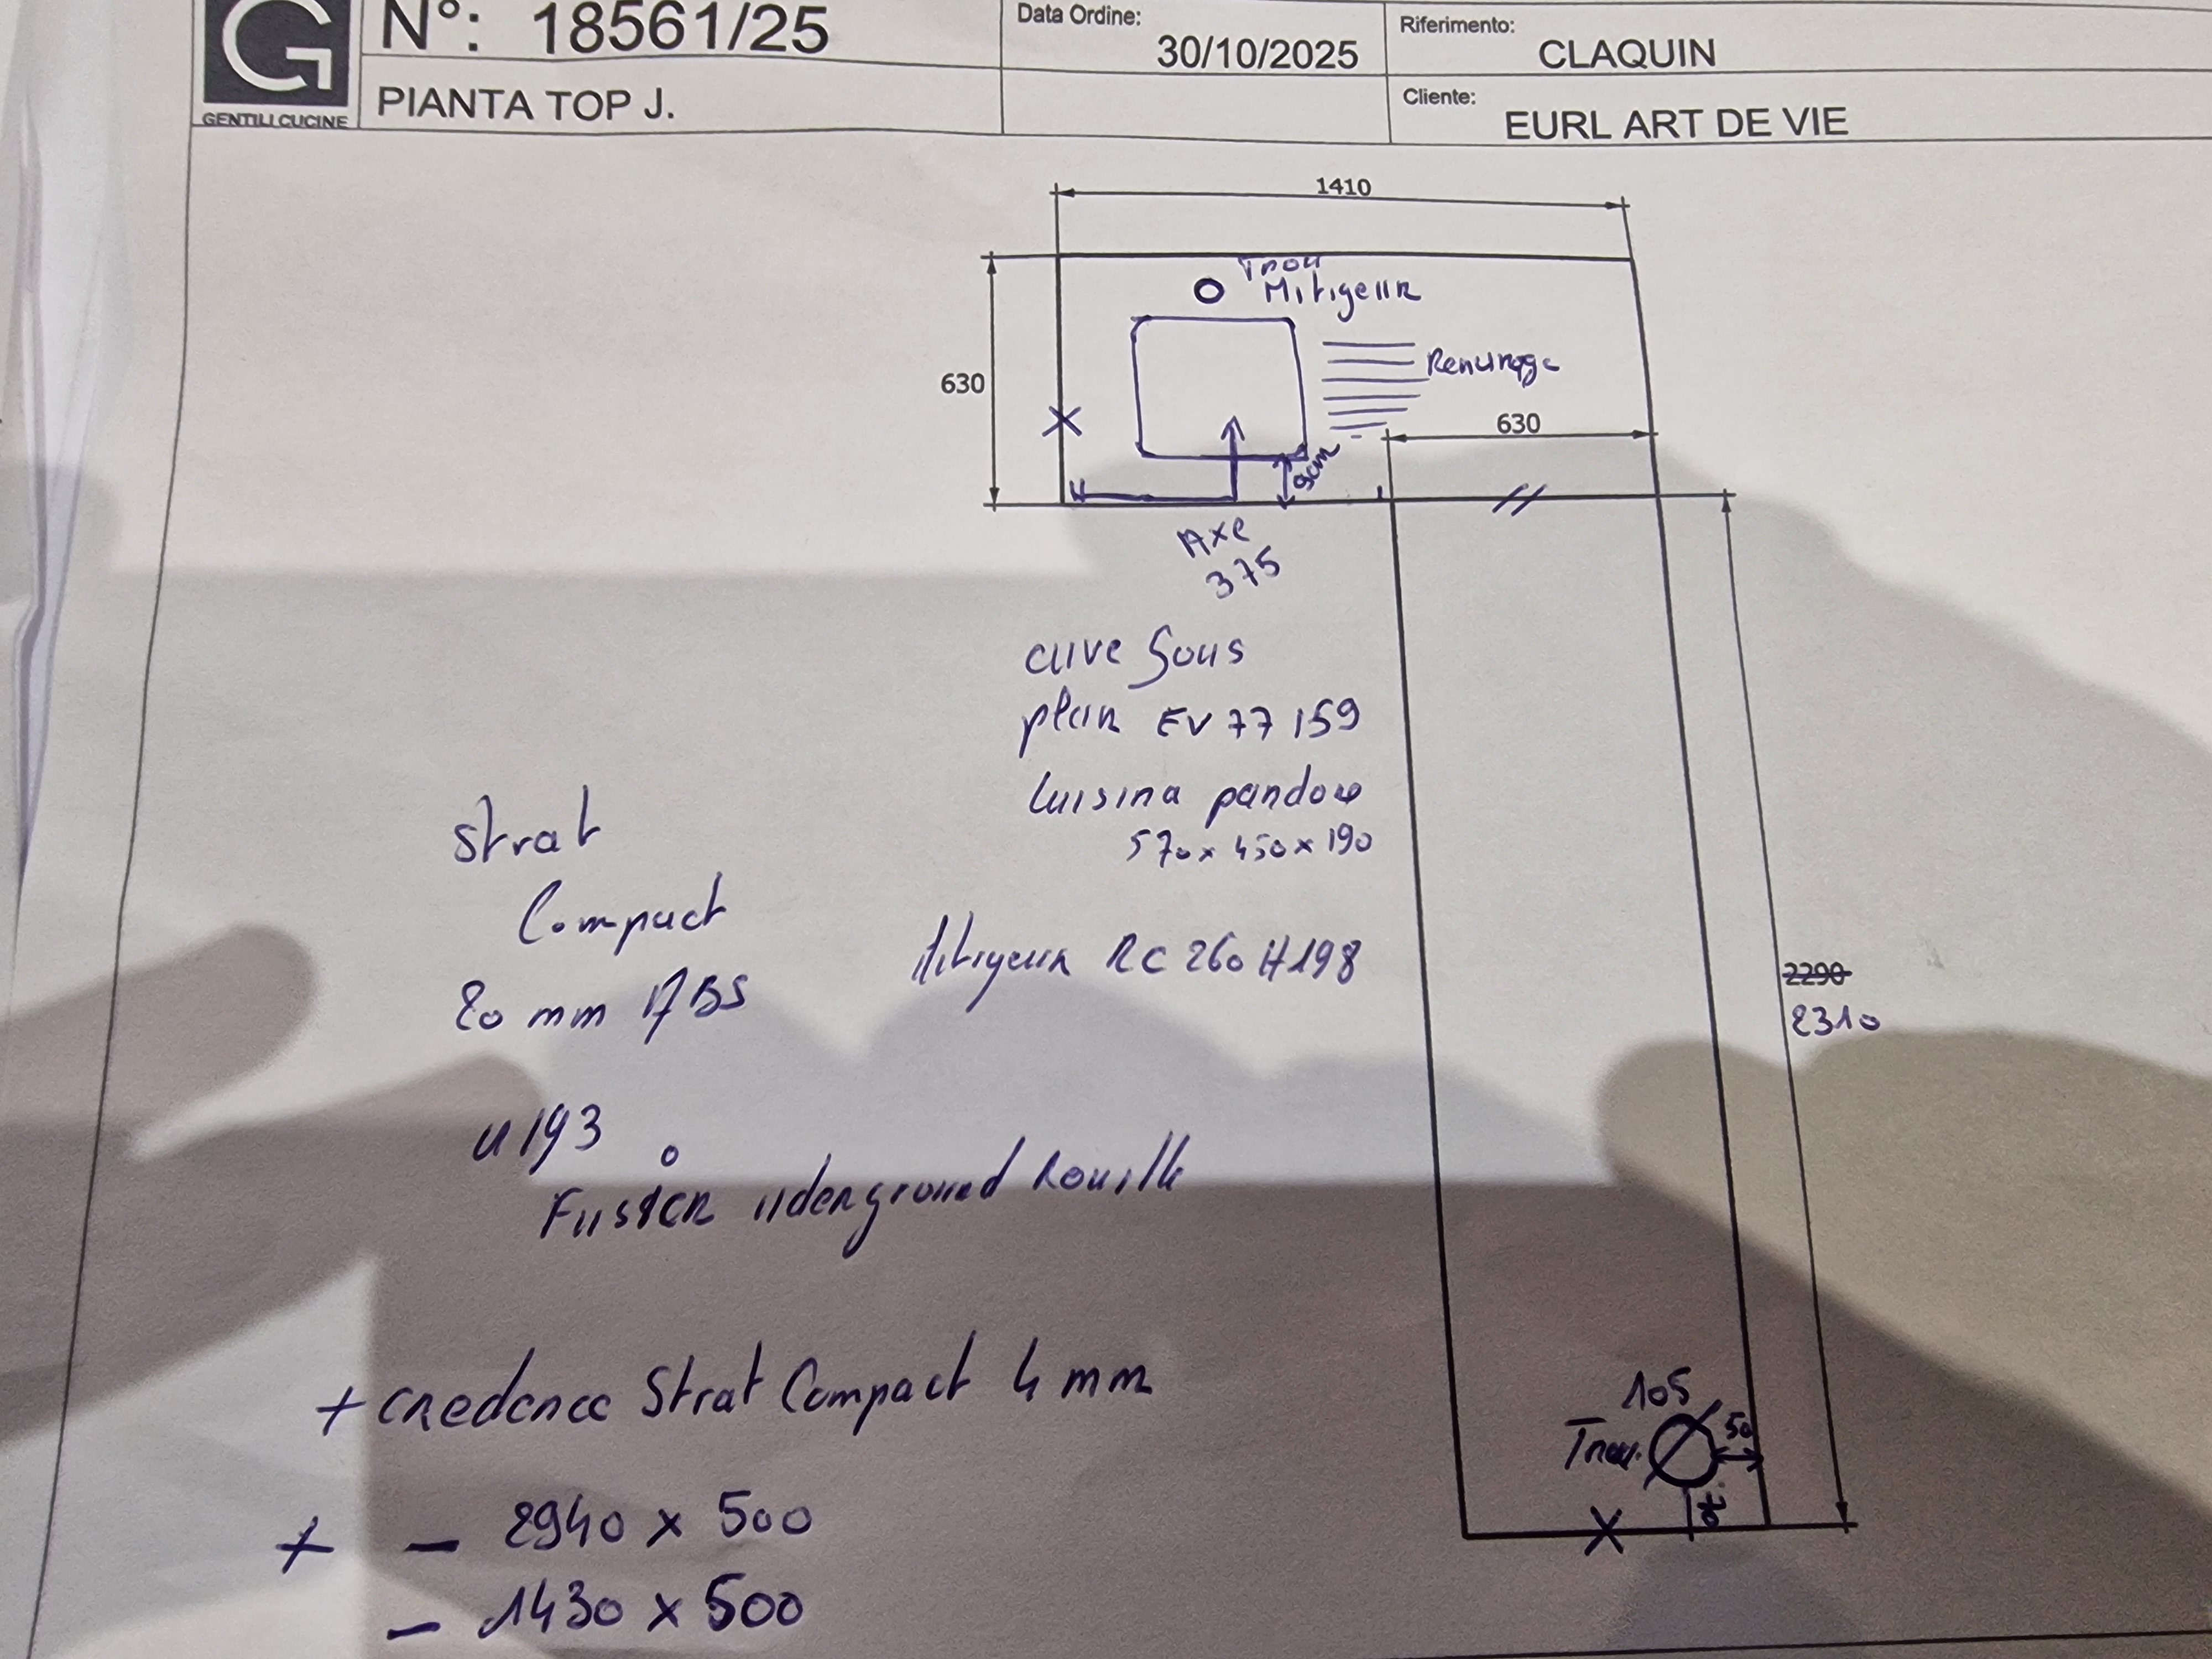 G
GENTILI CUCINE
N°: 18561/25
PIANTA TOP J.
Data Ordine:
30/10/2025
Riferimento:
CLAQUIN
Cliente:
EURL ART DE VIE
1410
Trou
Mitigeur
630
Renurage
630
9cm
Axe
375
cuve Sous
plan EV 77 159
Luisina pandore
570 x 450 x 190
Mitigeur RC 260 H198
2290
2310
Strat
Compact
20 mm ABS
u 193
Fusion underground Rouille
+ credence Strat Compact 4 mm
+ - 2940 x 500
- 1430 x 500
105
Trou
50